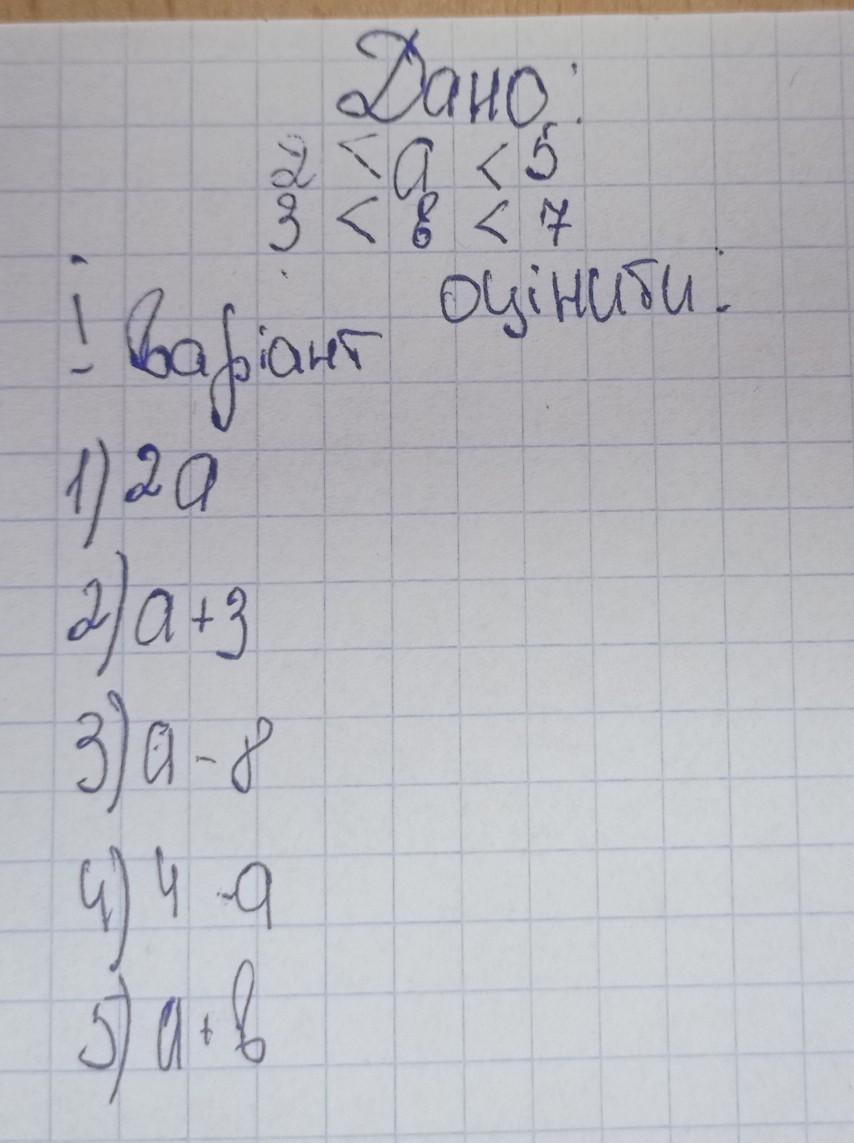 Дано:
2 < a < 5
3 < в < 7
оцінити:
I Варіант
1) 2a
2) a + 3
3) a - 8
4) 4 - a
5) a + в